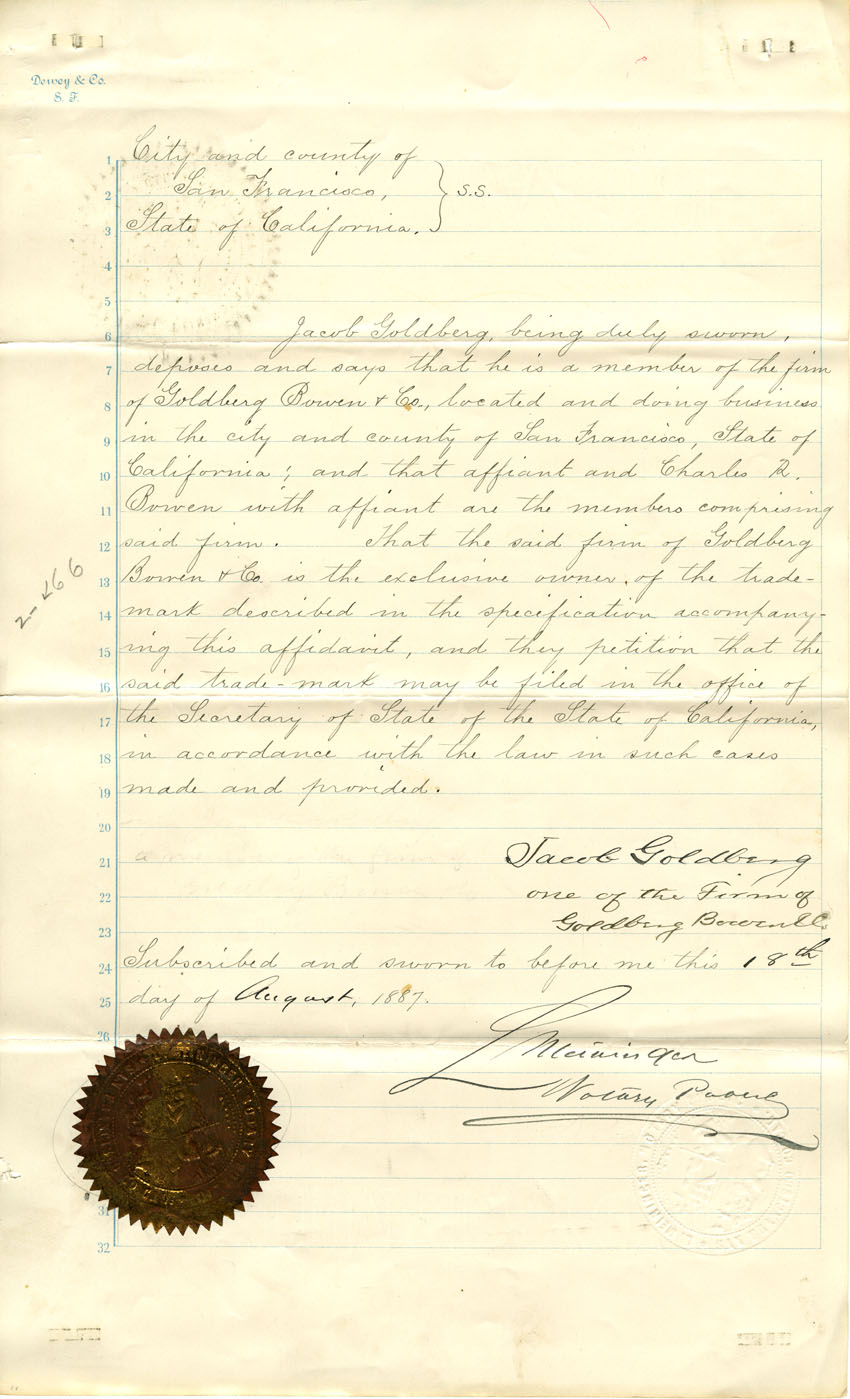 Dewey & Co.
S. F.
City and county of
San Francisco,
State of California.
} S.S.
1
2
3
4
5
6 Jacob Goldberg, being duly sworn,
7 deposes and says that he is a member of the firm
8 of Goldberg Bowen & Co., located and doing business
9 in the city and county of San Francisco, State of
10 California; and that affiant and Charles R.
11 Bowen with affiant are the members comprising
12 said firm. That the said firm of Goldberg
13 Bowen & Co. is the exclusive owner, of the trade-
14 mark described in the specification accompany-
15 ing this affidavit, and they petition that the
16 said trade-mark may be filed in the office of
17 the Secretary of State of the State of California,
18 in accordance with the law in such cases
19 made and provided.
20
21 Jacob Goldberg
22 one of the Firm of
23 Goldberg Bowen & Co.
24 Subscribed and sworn to before me this 18th
25 day of August, 1887.
26
Notary Public
31
32